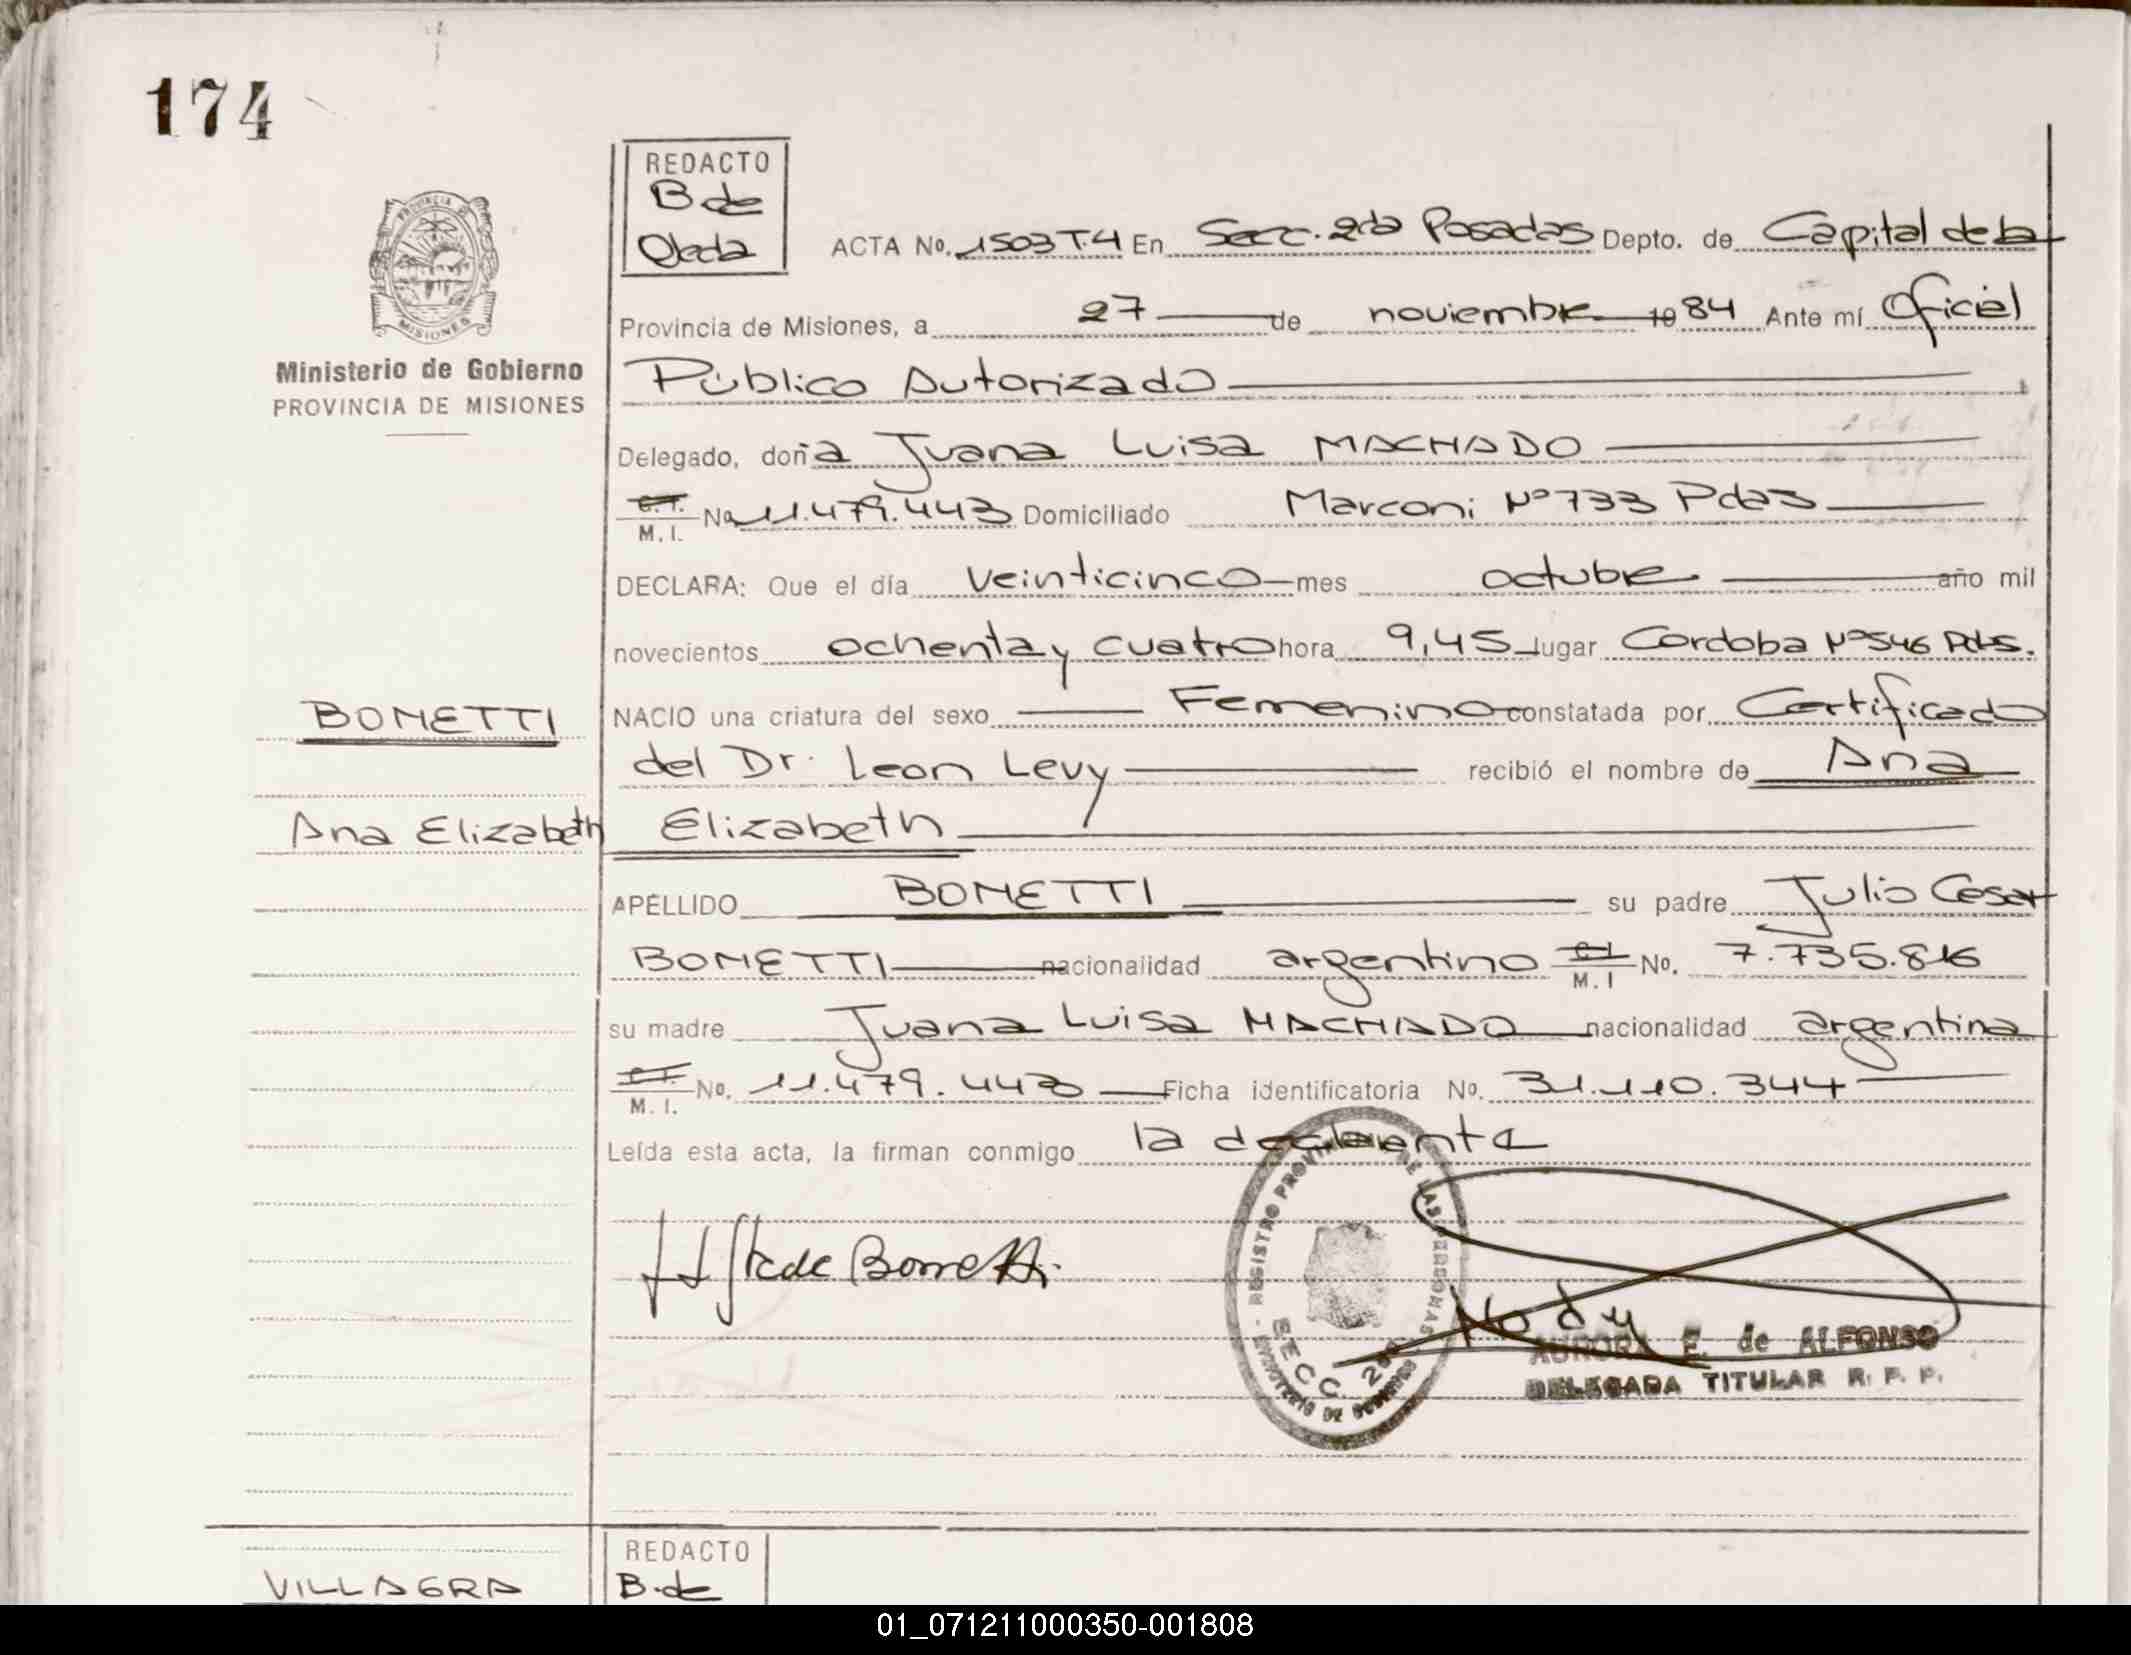 174
REDACTO
B de
Ojeda
ACTA No. 1503 T.4 En Secc. 2da Posadas Depto. de Capital de la
Provincia de Misiones, a 27 de noviembre 1984 Ante mí Oficial
Público Autorizado
Delegado, doña Juana Luisa MACHADO
C. I. M. I. No 11.479.443 Domiciliado Marconi Nº 733 Pdas
DECLARA: Que el día veinticinco mes octubre año mil
novecientos ochenta y cuatro hora 9,45 lugar Cordoba Nº 546 Pdas.
NACIO una criatura del sexo Femenino constatada por Certificado
del Dr. Leon Levy recibió el nombre de Ana
Elizabeth
APELLIDO BONETTI su padre Julio Cesar
BONETTI nacionalidad argentino C.I. M. I No. 7.735.816
su madre Juana Luisa MACHADO nacionalidad argentina
C. I. M. I. No. 11.479.443 Ficha identificatoria No. 31.110.344
Leída esta acta, la firman conmigo la declarante
de Bonetti
PROVINCIA DE MISIONES
Ministerio de Gobierno
PROVINCIA DE MISIONES
BONETTI
Ana Elizabeth
REGISTRO PROVINCIAL DE LAS PERSONAS
SECC. 2da
MINISTERIO DE GOBIERNO
AURORA E. de ALFONSO
DELEGADA TITULAR R. P. P.
VILLAGRA
REDACTO
B. de
01_071211000350-001808